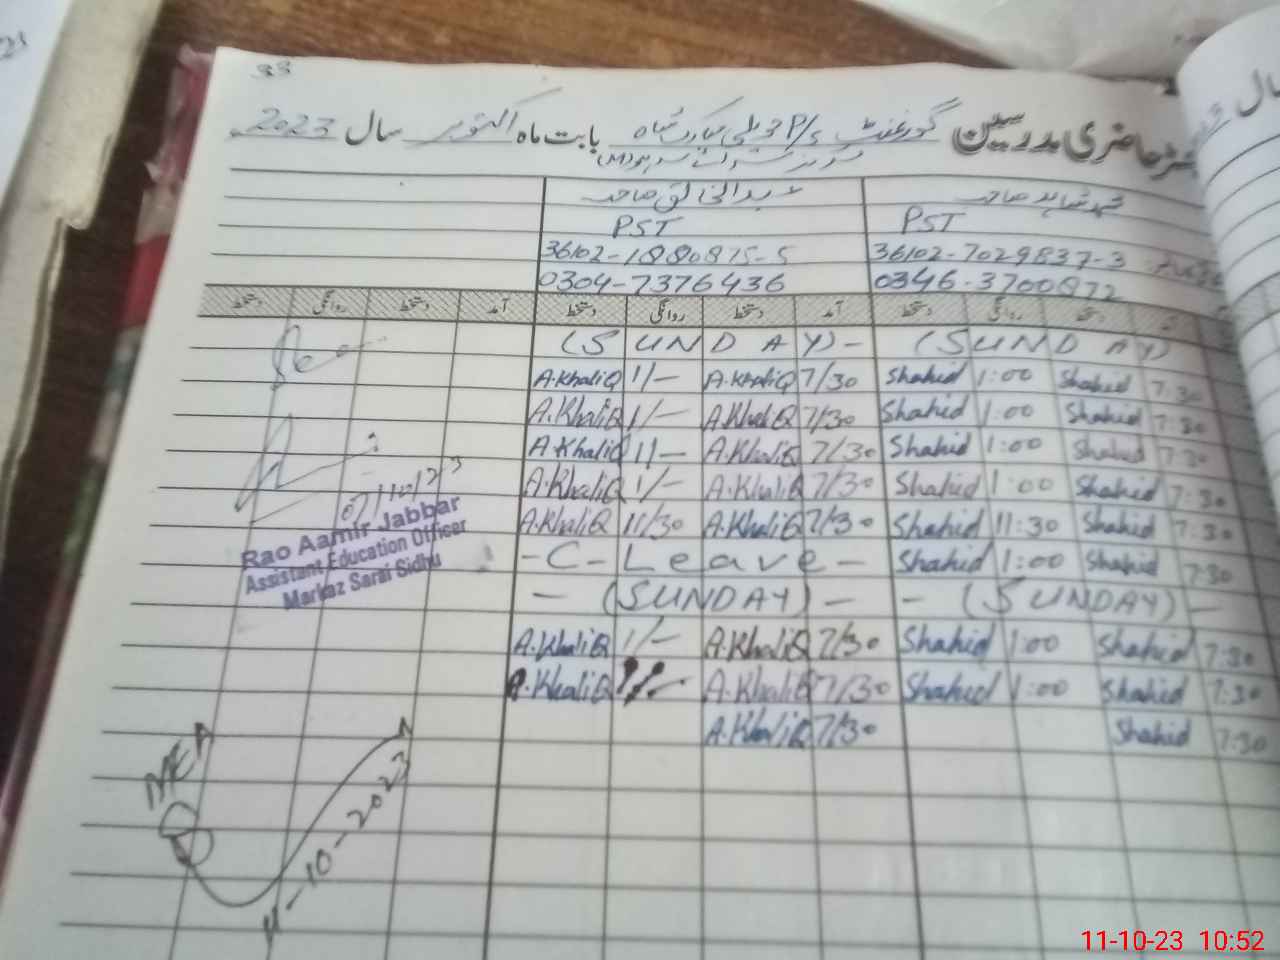 33
رجسٹر حاضری مدرسین گورنمنٹ P/S بابت ماہ اکتوبر سال 2023
محمد شاہد صاحب عبدالخالق صاحب
PST PST
36102-1880875-5 36102-7029837-3
0304-7376436 0346-3700872
آمد دستخط روانگی دستخط آمد دستخط روانگی دستخط آمد دستخط روانگی دستخط
(SUNDAY)- (SUNDAY)
A.KhaliQ 1/- A.KhaliQ 7/30 Shahid 1:00 Shahid 7:30
A.KhaliQ 1/- A.KhaliQ 7/30 Shahid 1:00 Shahid 7:30
A.KhaliQ 1/- A.KhaliQ 7/30 Shahid 1:00 Shahid 7:30
A.KhaliQ 1/- A.KhaliQ 7/30 Shahid 1:00 Shahid 7:30
A.KhaliQ 11/30 A.KhaliQ 7/30 Shahid 11:30 Shahid 7:30
-C-Leave- Shahid 1:00 Shahid 7:30
-(SUNDAY)- -(SUNDAY)-
A.KhaliQ 1/- A.KhaliQ 7/30 Shahid 1:00 Shahid 7:30
A.KhaliQ 1/- A.KhaliQ 7/30 Shahid 1:00 Shahid 7:30
A.KhaliQ 7/30 Shahid 7:30
07/10/23
Rao Aamir Jabbar
Assistant Education Officer
Markaz Sarai Sidhu
MEA
11-10-2023
11-10-23 10:52